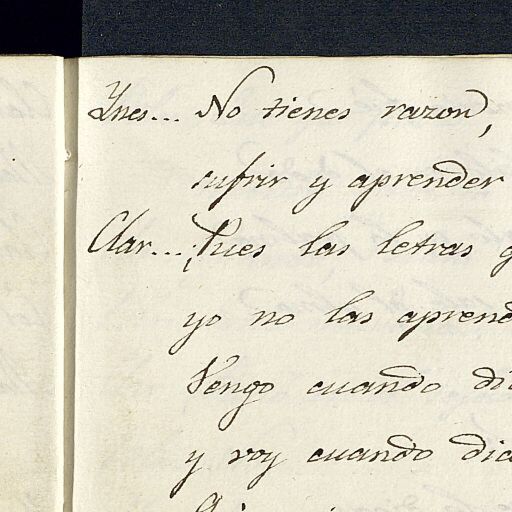 Ynes... No tienes razon,
sufrir y aprender
Clar... ¿Pues las letras
yo no las
Vengo cuando
y voy cuando